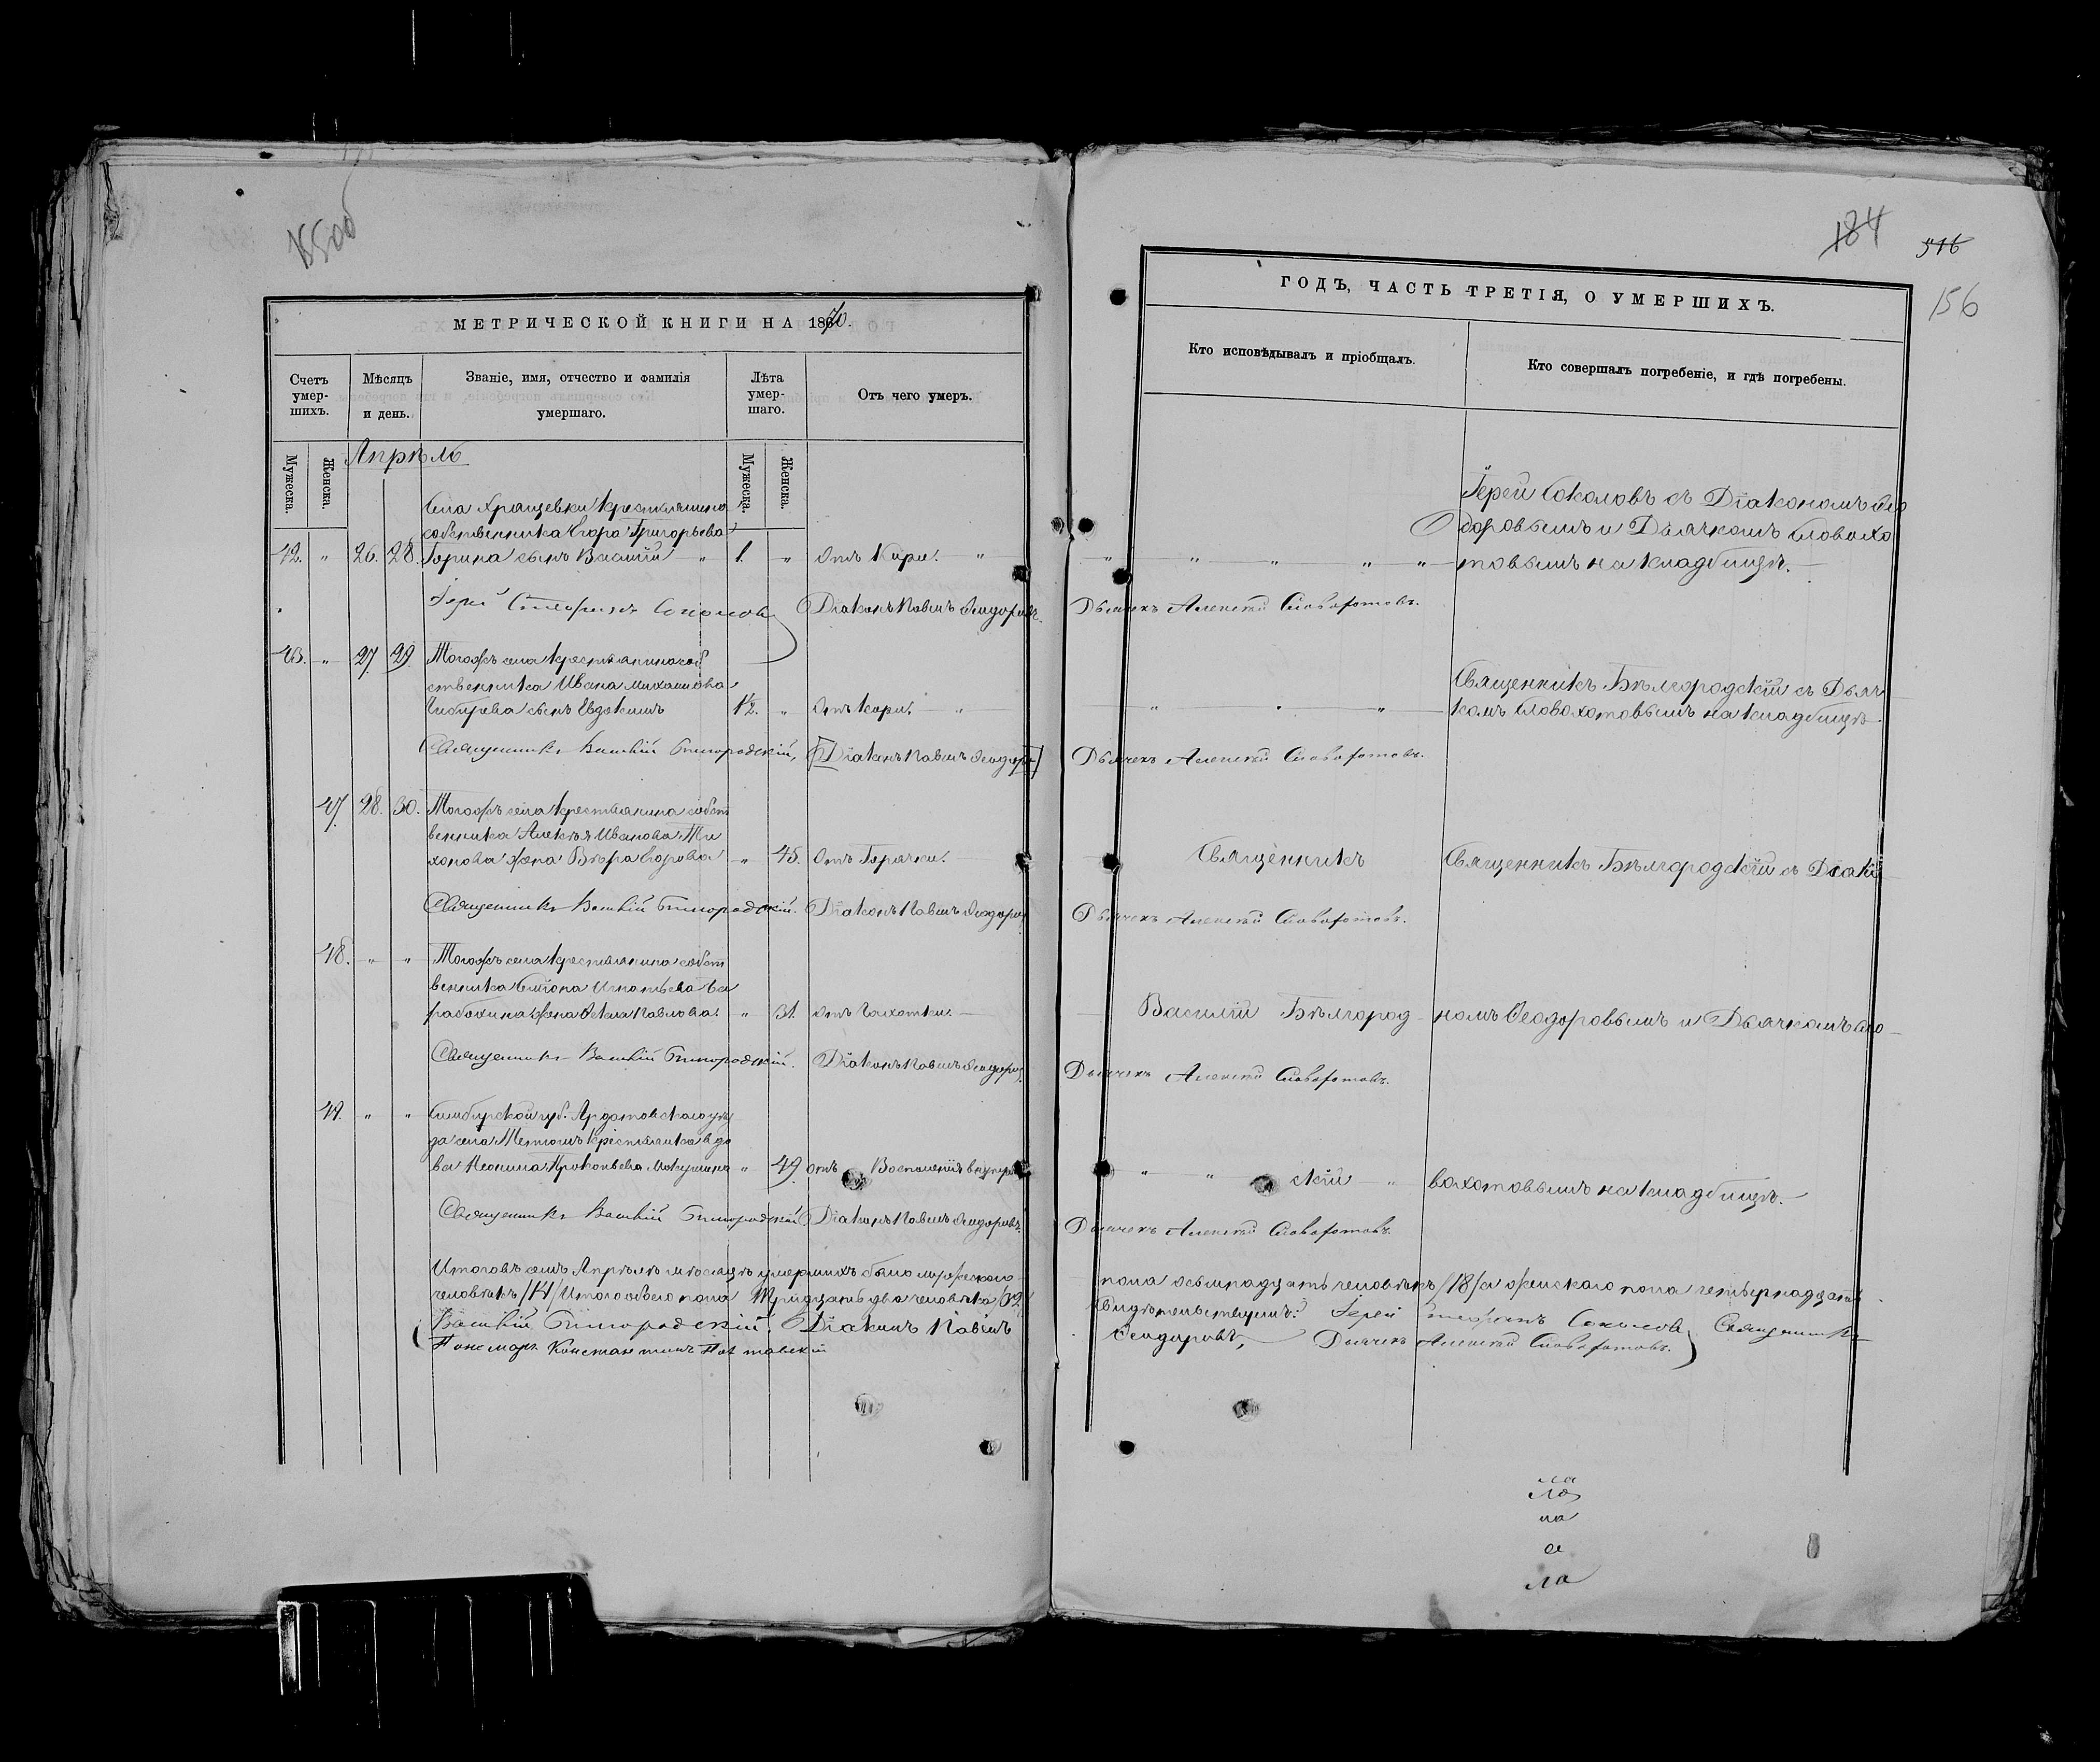 155об
МЕТРИЧЕСКОЙ КНИГИ НА 1870.
Счетъ умер-шихъ.
Мѣсяцъ и день.
Званіе, имя, отчество и фамилія умершаго.
Лѣта умер-шаго.
Отъ чего умеръ.
Мужеска.
Женска.
Апрѣль
Мужеска.
Женска.
Села Хрящевки крестьянина
собственника Егора Григорьева
42. " 26. 28. Горина сынъ Василій " 1. " Отъ Кори. "
Іерей Соколовъ Діаконъ Павелъ Ѳеодоровъ.
43. " 27. 29. Тогожъ села крестьянина соб
ственника Ивана Михайлова
Чибирева сынъ Евдокимъ 1½. " Отъ кори. "
Священникъ Василій Бѣлгородскій, Діаконъ Павелъ Ѳеодоровъ
47. 28. 30. Тогожъ села крестьянина собст
венника Алексѣя Иванова Ти
хонова жена Вѣра Егорова " 45. Отъ Горячки.
Священникъ Василій Бѣлгородскій. Діаконъ Павелъ Ѳеодоровъ
48. " " Тогожъ села крестьянина собст
венника Игнатьева
жена Павлова. " 31. Отъ Чахотки.
Священникъ Василій Бѣлгородскій. Діаконъ Павелъ Ѳеодоровъ
49. " " Симбирской губ. Ардатовскаго уѣз
да села крестьянка вдо
ва Прокопьева " 49. отъ Воспаленія
Священникъ Василій Бѣлгородскій Діаконъ Павелъ Ѳеодоровъ.
Итого въ семъ Апрѣлѣ мѣсяцѣ умершихъ было мужескаго
человѣкъ /14/ Итого обоего пола Тридцать два человѣка /32
Василій Бѣлгородскій. Діаконъ Павелъ
Пономарь Константинъ
184 516
156
ГОДЪ, ЧАСТЬ ТРЕТІЯ, О УМЕРШИХЪ.
Кто исповѣдывалъ и пріобщалъ.
Кто совершалъ погребеніе, и гдѣ погребены.
Іерей Соколовъ съ Діакономъ Ѳео
доровымъ и Дьячкомъ Словохо
" " " " " товымъ на кладбищѣ.
Дьячекъ Алексѣй Словохотовъ.
Священникъ Бѣлгородскій съ Дьяч
" " " комъ Словохотовымъ на кладбищѣ.
Дьячекъ Алексѣй Словохотовъ.
Священникъ Священникъ Бѣлгородскій съ Діако
Дьячекъ Алексѣй Словохотовъ.
Василій Бѣлгород номъ Ѳеодоровымъ и Дьячкомъ Сло
Дьячекъ Алексѣй Словохотовъ.
" " скій " вохотовымъ на кладбищѣ.
Дьячекъ Алексѣй Словохотовъ.
пола осьмнадцать человѣкъ /18/ а женскаго пола четырнадцать
свидѣтельствуемъ: Іерей Соколовъ Священникъ
Ѳеодоровъ, Дьячекъ Алексѣй Словохотовъ.
ла
ла
на
а
ла